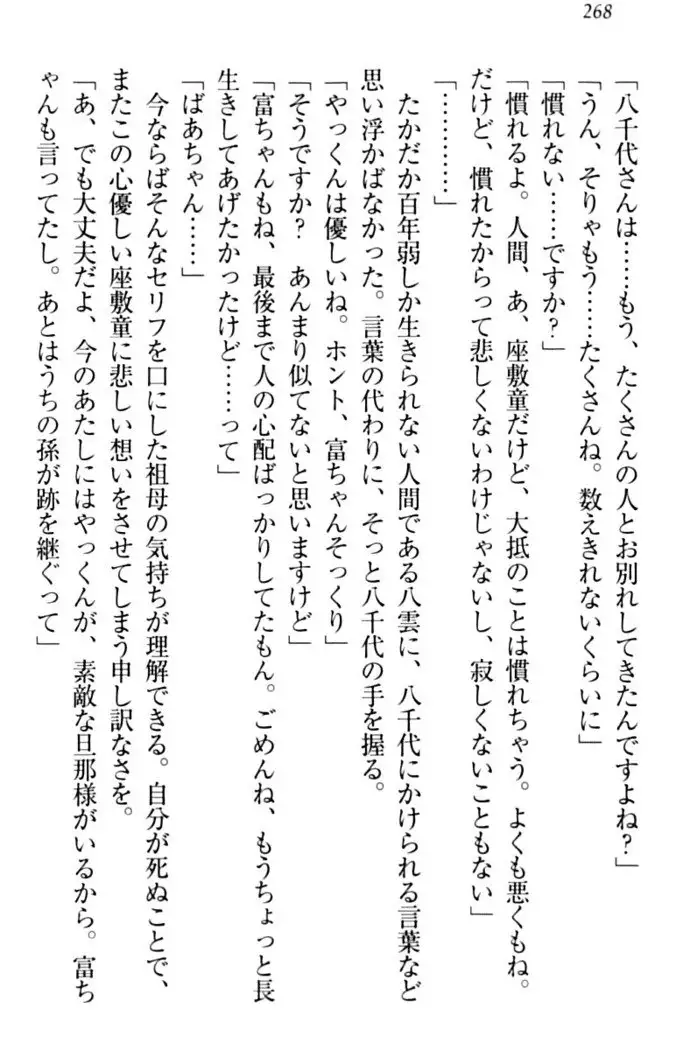 268
「八千代さんは……もう、たくさんの人とお別れしてきたんですよね?」
「うん、そりゃもう……たくさんね。数えきれないくらいに」
「慣れない……ですか?」
「慣れるよ。人間、あ、座敷童だけど、大抵のことは慣れちゃう。よくも悪くもね。
だけど、慣れたからって悲しくないわけじゃないし、寂しくないこともない」
「…………」
たかだか百年弱しか生きられない人間である八雲に、八千代にかけられる言葉など
思い浮かばなかった。言葉の代わりに、そっと八千代の手を握る。
「やっくんは優しいね。ホント、富ちゃんそっくり」
「そうですか? あんまり似てないと思いますけど」
「富ちゃんもね、最後まで人の心配ばっかりしてたもん。ごめんね、もうちょっと長
生きしてあげたかったけど……って」
「ばあちゃん……」
今ならばそんなセリフを口にした祖母の気持ちが理解できる。自分が死ぬことで、
またこの心優しい座敷童に悲しい想いをさせてしまう申し訳なさを。
「あ、でも大丈夫だよ、今のあたしにはやっくんが、素敵な旦那様がいるから。富ち
ゃんも言ってたし。あとはうちの孫が跡を継ぐって」